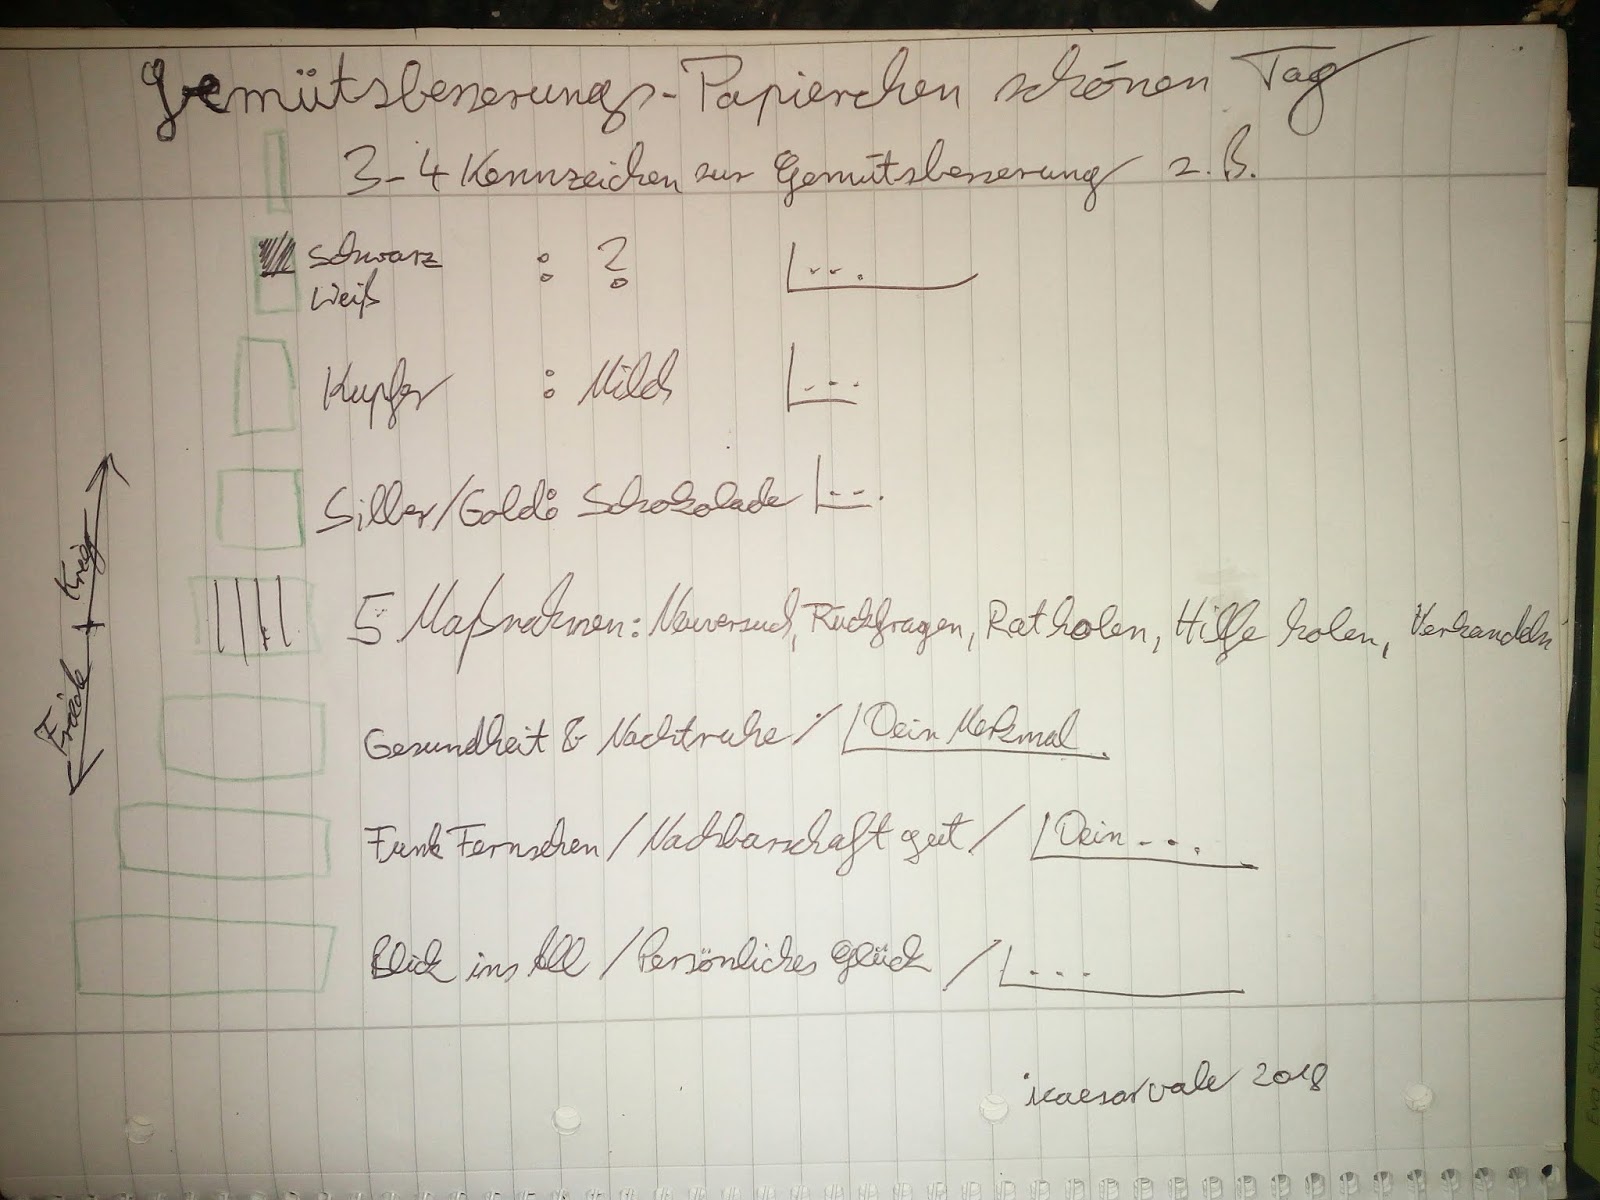 Gemütsbesserungs-Papierchen schönen Tag
3-4 Kennzeichen zur Gemütsbesserung z.B.
Schwarz : ? ...
Weiß
Kupfer : Milch ...
Silber/Gold: Schokolade ...
Friede + Krieg
5 Maßnahmen: Neuversuch, Rückfragen, Rat holen, Hilfe holen, Verhandeln
Gesundheit & Nachtruhe / Dein Merkmal
Funk Fernsehen / Nachbarschaft gut / Dein ...
Blick ins All / Persönliches Glück / ...
icaesarvale 2018